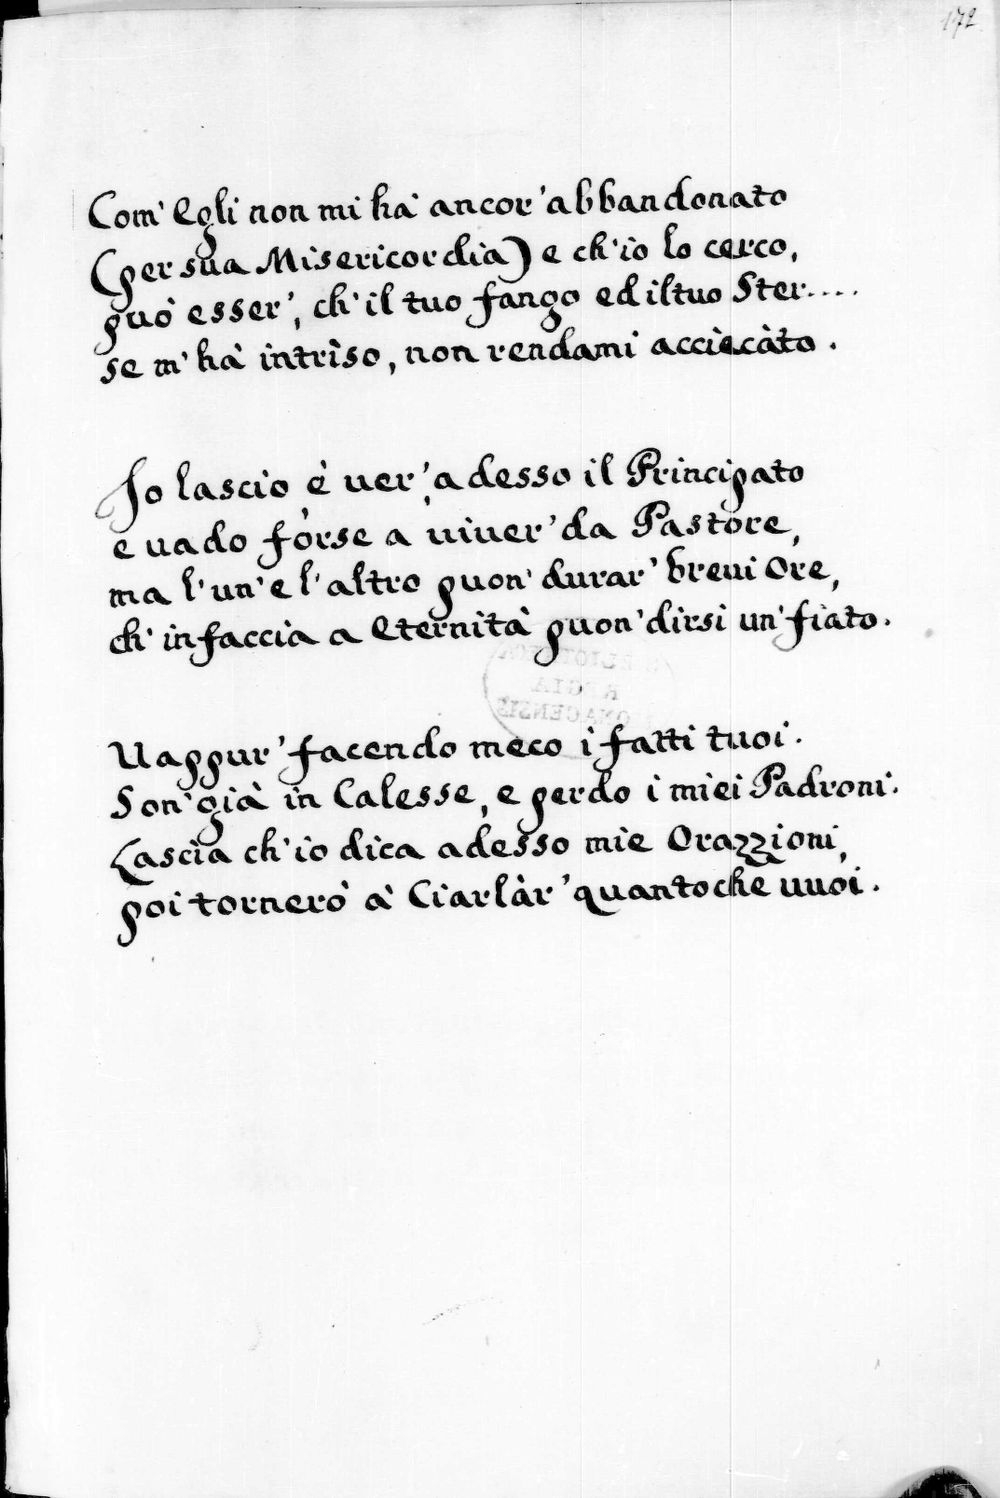 172
Com' Egli non mi hà ancor' abbandonato
(per sua Misericordia) e ch'io lo cerco,
può esser', ch'il tuo fango ed il tuo Ster....
se m'hà intrìso, non rendami accìecàto.
Io lascio è ver', adesso il Principato
e vado fòrse a viver' da Pastore,
ma l'un' e l'altro puon' durar' brevi Ore,
ch' in faccia a Eternità puon' dirsi un' fiàto.
BIBLIOTHECA
REGIA
MONACENSIS
Vappur' facendo meco i fatti tuoi.
Son' già in Calesse, e perdo i miei Padroni.
Lascia ch'io dica adesso mie Orazzioni,
poi tornerò à Ciarlàr' quantochè vuoi.